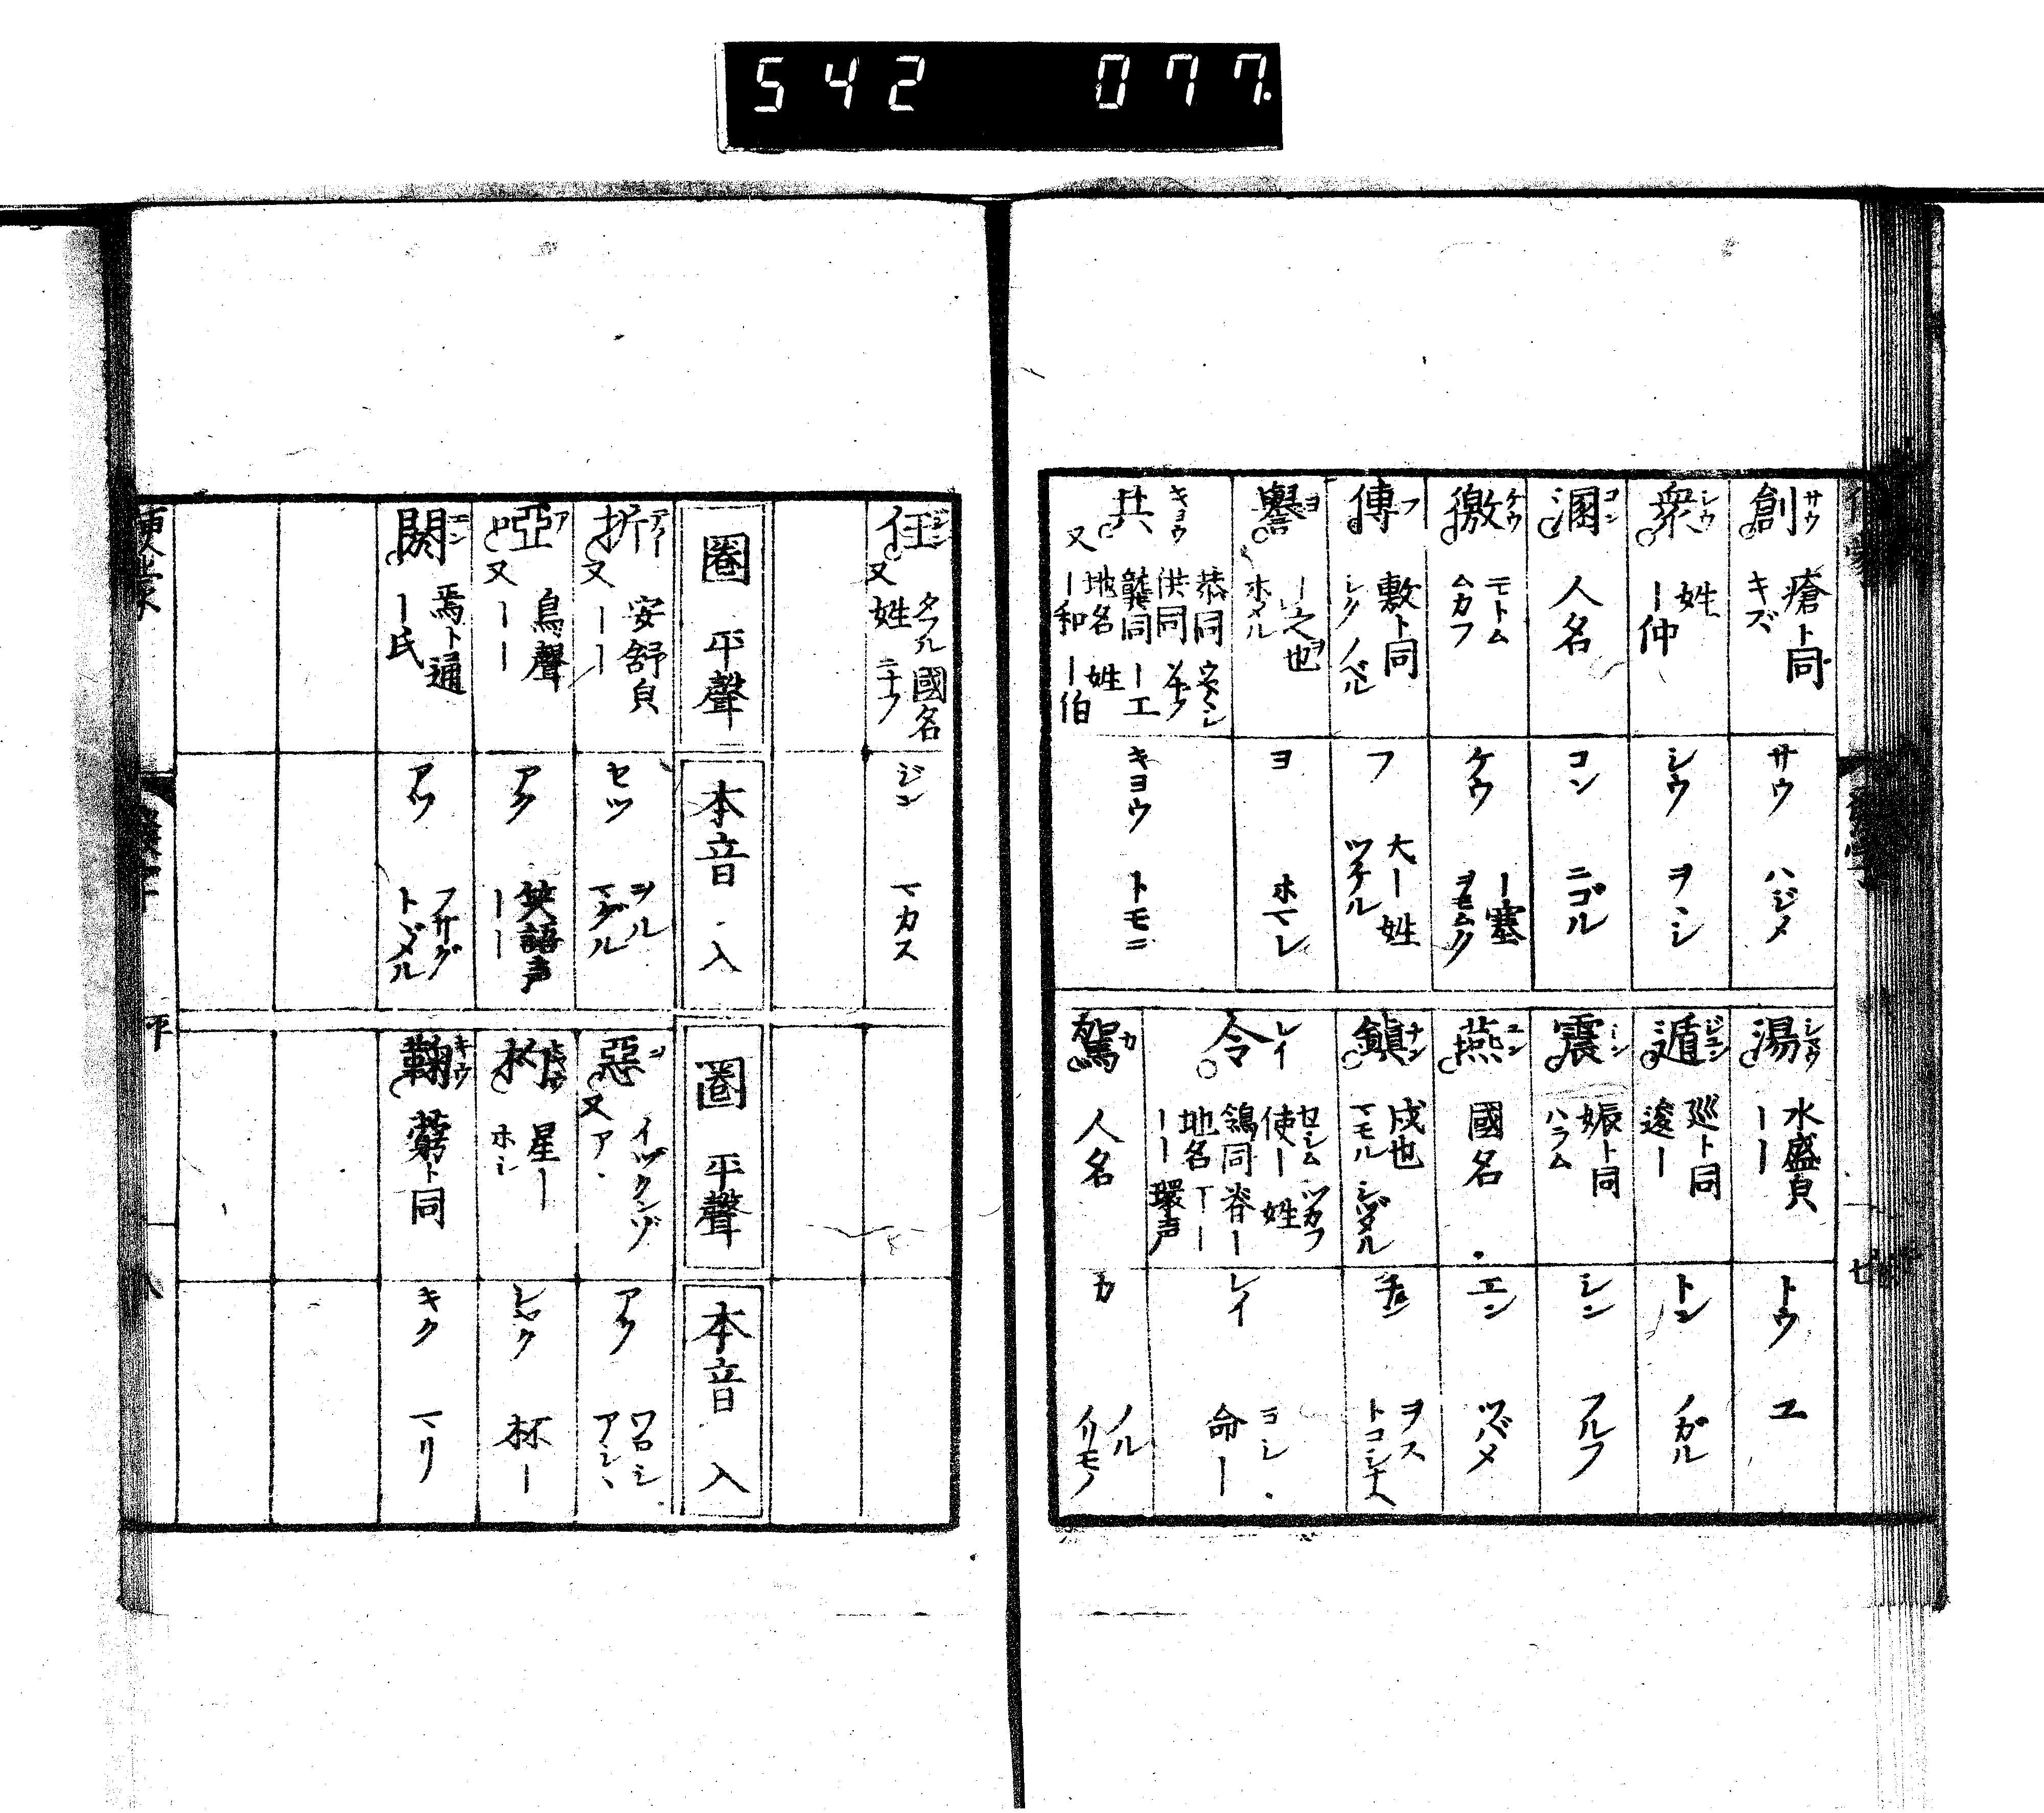 542 077.
創 サウ 瘡ト同 キズ
サウ ハジメ
衆 シウ 姓 ー仲
シウ ヲヽシ
溷 コン 人名
コン ニゴル
徼 ケウ モトム ムカフ
ケウ ー塞 ヲモムク
傅 フ 敷ト同 シク ノベル
フ 大ー姓 ツケル
譽 ヨ ー之也 ホメル
ヨ ホマレ
共 キョウ 恭同 ウヤマシ 洪同 龔同 ー工 地名 姓 又ー和 ー伯
キヨウ トモニ
湯 シャウ 水盛貝 ーー
トウ ユ
遁 巡ト同 逡ー
トン ノガル
震 娠ト同 ハラム
シン フルフ
燕 エン 國名
エン ツバメ
鎮 チン 戍也 マモル シヅメル
チン ヲス トコシナヘ
令 レイ セシム ツカフ 使ー 姓 鴒同 脊ー 地名 ーー ーー環声
レイ ヨシ 命ー
駕 カ 人名
カ ノル ノリモノ
任 ジン タフル 國名 又姓 ニナフ
ジン マカス
圏 平聲
本音 入
折 安舒貝 又ーー
セツ ヲル マグル
啞 ア 鳥聲 又ーー
アク 笑語声 ーー
閼 エン 焉ト通 ー氏
アツ フサグ トヾメル
圏 平聲
本音 入
惡 イヅクンゾ 又ア
アク ワロシ アシヽ
杓 星ー ホシ
シャク 杯ー
鞠 キウ 藭ト同
キク マリ
平